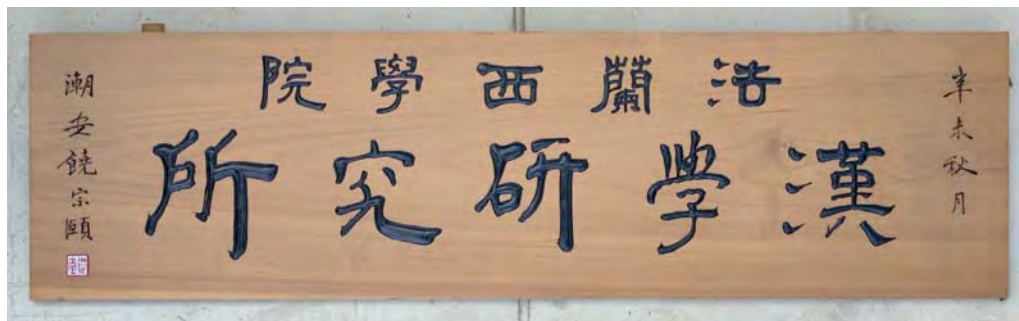 辛未秋月
法蘭西學院
漢學研究所
潮安饒宗頤